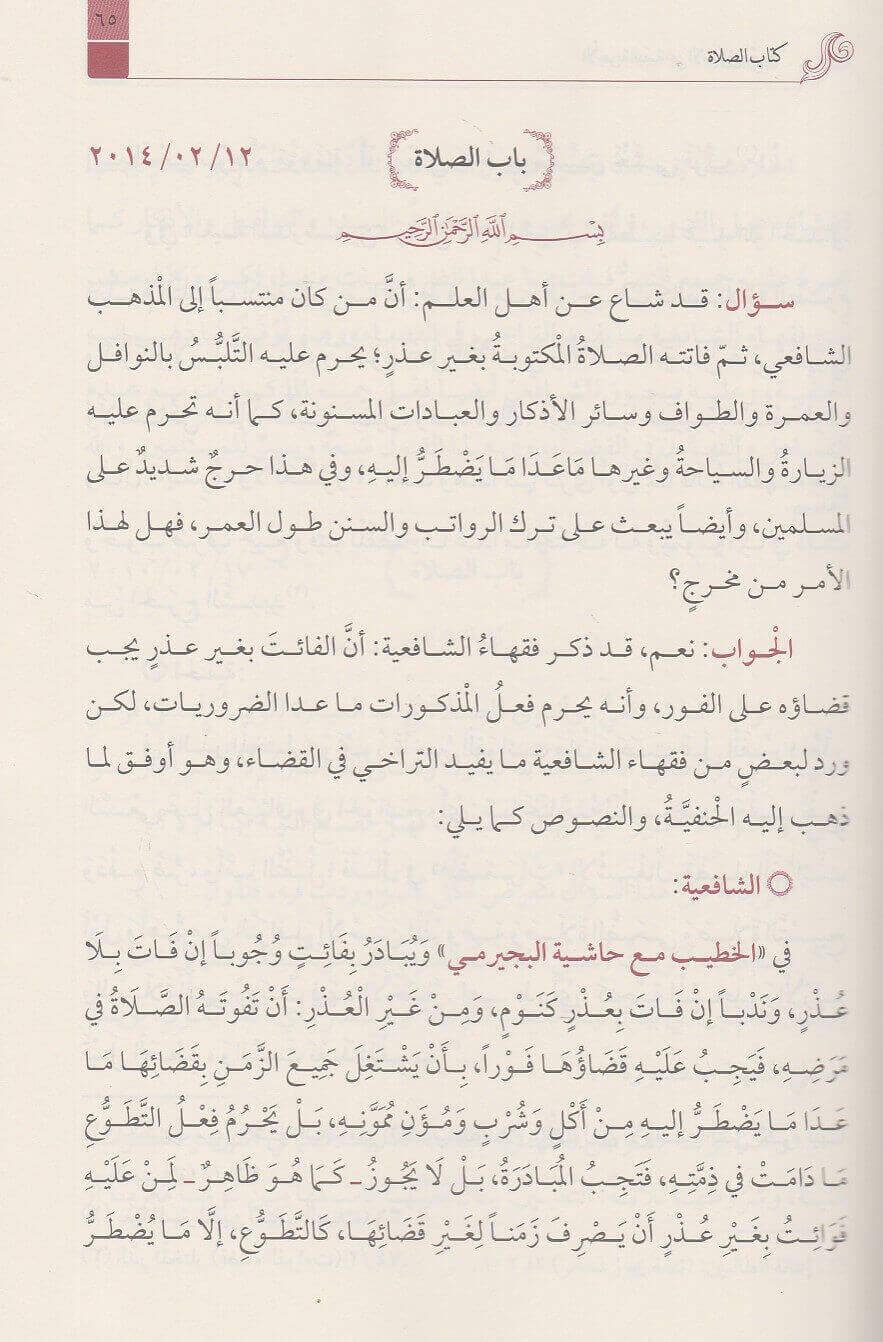 ٦٥
كتاب الصلاة
باب الصلاة
٢٠١٤/٠٢/١٢
بِسْمِ اللَّهِ الرَّحْمَٰنِ الرَّحِيمِ
سؤال: قد شاع عن أهل العلم: أنَّ من كان منتسباً إلى الْمذهب
الشافعي، ثمّ فاتته الصلاةُ الْمكتوبةُ بغير عذرٍ؛ يحرم عليه التَّلبُّسُ بالنوافل
والعمرة والطواف وسائر الأذكار والعبادات المسنونة، كما أنه تحرم عليه
الزيارةُ والسياحةُ وغيرها مَاعَدَا مَا يَضْطَرُّ إليهِ، وفي هذا حرجٌ شديدٌ على
المسلمين، وأيضاً يبعث على ترك الرواتب والسنن طول العمر، فهل لهذا
الأمر من مخرجٍ؟
الْجواب: نعم، قد ذكر فقهاءُ الشافعية: أنَّ الفائتَ بغير عذرٍ يجب
قضاؤه على الفور، وأنه يحرم فعلُ الْمذكورات ما عدا الضروريات، لكن
ورد لبعضٍ من فقهاء الشافعية ما يفيد التراخي في القضاء، وهو أوفق لما
ذهب إليه الْحنفيَّةُ، والنصوص كما يلي:
الشافعية:
في «الخطيب مع حاشية البجيرمي» وَيُبَادَرُ بِفَائِتٍ وُجُوباً إنْ فَاتَ بِلَا
عُذْرٍ، وَنَدْباً إنْ فَاتَ بِعُذْرٍ كَنَوْمٍ، وَمِنْ غَيْرِ الْعُذْرِ: أَنْ تَفُوتَهُ الصَّلَاةُ فِي
مَرَضِهِ، فَيَجِبُ عَلَيْهِ قَضَاؤُهَا فَوْراً، بِأَنْ يَشْتَغِلَ جَمِيعَ الزَّمَنِ بِقَضَائِهَا مَا
عَدَا مَا يَضْطَرُّ إليهِ مِنْ أَكْلٍ وَشُرْبٍ وَمُؤَنِ مُمَوَّنِهِ، بَلْ يَحْرُمُ فِعْلُ التَّطَوُّعِ
مَا دَامَتْ فِي ذِمَّتِهِ، فَتَجِبُ الْمُبَادَرَةُ، بَلْ لَا يَجُوزُ ـ كَمَا هُوَ ظَاهِرٌ ـ لِمَنْ عَلَيْهِ
فَوَائِتُ بِغَيْرِ عُذْرٍ أَنْ يَصْرِفَ زَمَناً لِغَيْرِ قَضَائِهَا، كَالتَّطَوُّعِ، إلَّا مَا يُضْطَرُّ